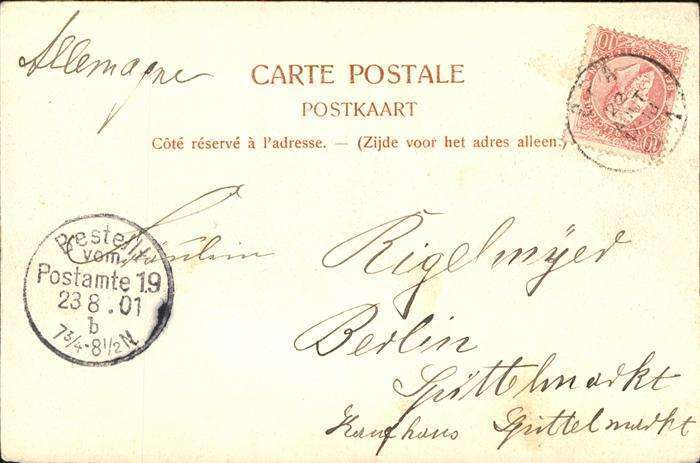 Allemagne
CARTE POSTALE
POSTKAART
Côté réservé à l'adresse. — (Zijde voor het adres alleen.)
10
10
Fräulein Rigelmyer
Berlin
Spittelmarkt
Kaufhaus Spittelmarkt
Bestellt
vom
Postamte 19
23 8 . 01
b
7¾-8½N.